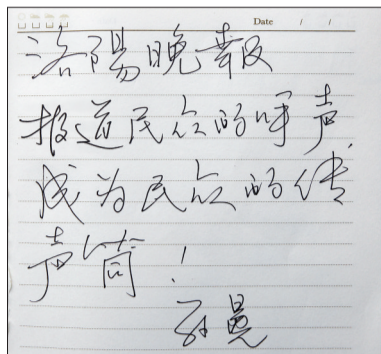 Date / /
洛陽晚報
报道民众的呼声,
成为民众的传
声筒!
孙晃